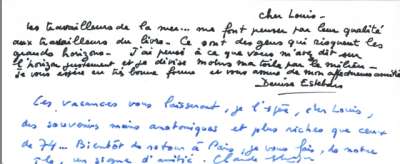 cher Louis -
Les travailleurs de la mer... me font penser par leur qualité
aux travailleurs du livre. Ce sont des gens qui risquent les
grands horizons. J'ai pensé à ce que vous m'avez dit sur
l'horizon justement et je divise moins ma toile par le milieu -
je vous espère en très bonne forme et vous assure de mon affectueuse amitié
- Denise Esteban
Ces vacances vous laisseront, je l'espère, cher Louis,
des souvenirs moins anatomiques et plus riches que ceux
de 74... Bientôt de retour à Paris, je vous fais, de notre
île, un signe d'amitié. Claude